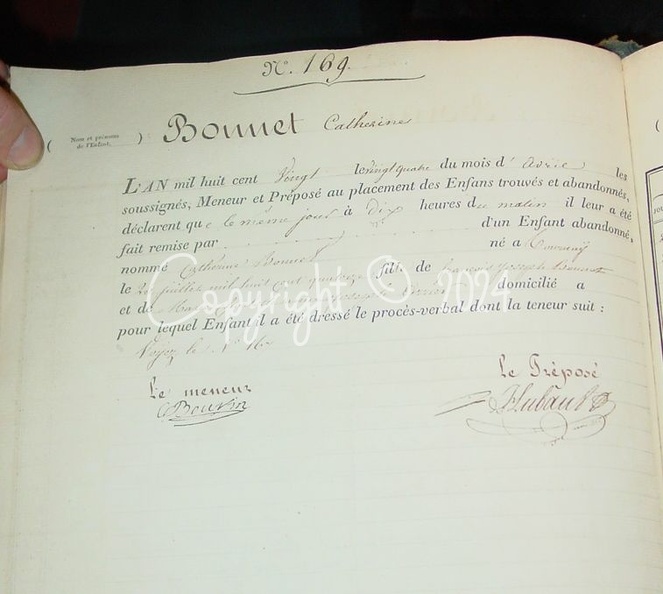 N°. 169.
( Nom et prénoms
de l'Enfant. ) Bonnet Catherine
L'AN mil huit cent Vingt le vingt quatre du mois d'avril les
soussignés, Meneur et Préposé au placement des Enfans trouvés et abandonnés,
déclarent que le même jour à dix heures du matin il leur a été
fait remise par d'un Enfant abandonné,
nommé Catherine Bonnet né a
le 20 juillet mil huit cent quatorze fille de françois joseph Bonnet
et de domicilié a
pour lequel Enfant il a été dressé le procès-verbal dont la teneur suit :
Voyez le N° 168
Le meneur
Le Préposé
Copyright © 202